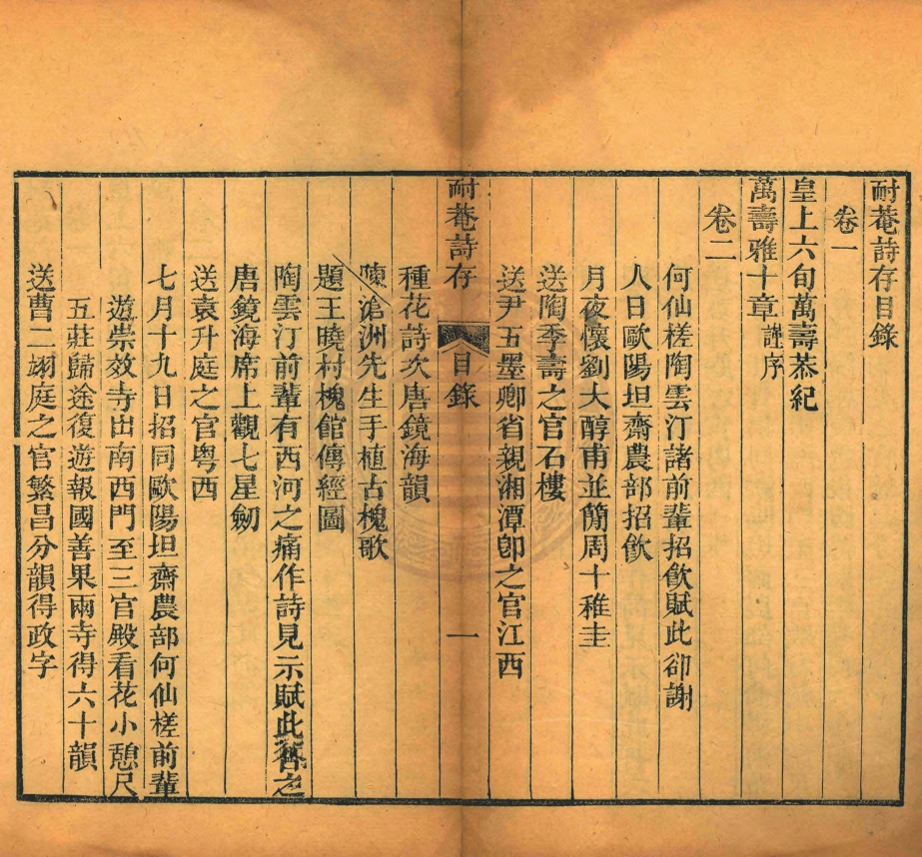 耐菴詩存目錄
卷一
皇上六旬萬壽恭紀
萬壽雅十章謹序
卷二
何仙槎陶雲汀諸前輩招飲賦此卻謝
人日歐陽坦齋農部招飲
月夜懷劉大醇甫並簡周十稚圭
送陶季壽之官石樓
送尹五墨卿省親湘潭卽之官江西
耐菴詩存
目錄
一
種花詩次唐鏡海韻
陳滄洲先生手植古槐歌
題王曉村槐館傳經圖
陶雲汀前輩有西河之痛作詩見示賦此答之
唐鏡海席上觀七星劒
送袁升庭之官粤西
七月十九日招同歐陽坦齋農部何仙槎前輩
遊崇效寺出南西門至三官殿看花小憩尺
五莊歸途復遊報國善果兩寺得六十韻
送曹二翊庭之官繁昌分韻得政字